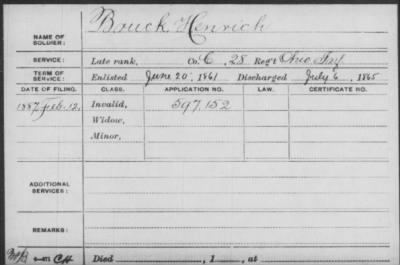 NAME OF SOLDIER: Bruck, Henrich
SERVICE: Late rank, Co. C, 28 Reg't Ohio Inf
TERM OF SERVICE: Enlisted June 20, 1861 Discharged July 6, 1865
DATE OF FILING. CLASS. APPLICATION NO. LAW. CERTIFICATE NO.
1887, Feb. 12, Invalid, 597,152
Widow,
Minor,
ADDITIONAL SERVICES:
REMARKS:
Died , 1 , at